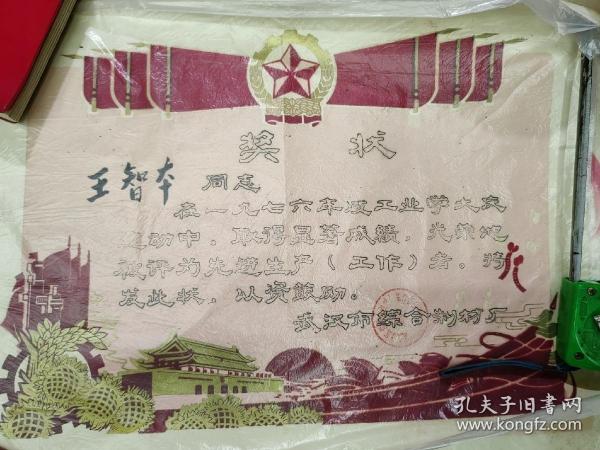 奖状
王智本 同志
在一九七六年度工业学大庆
运动中，取得显著成绩，光荣地
被评为先进生产（工作）者。特
发此状，以资鼓励。
武汉市综合制材厂
孔夫子旧书网
www.kongfz.com